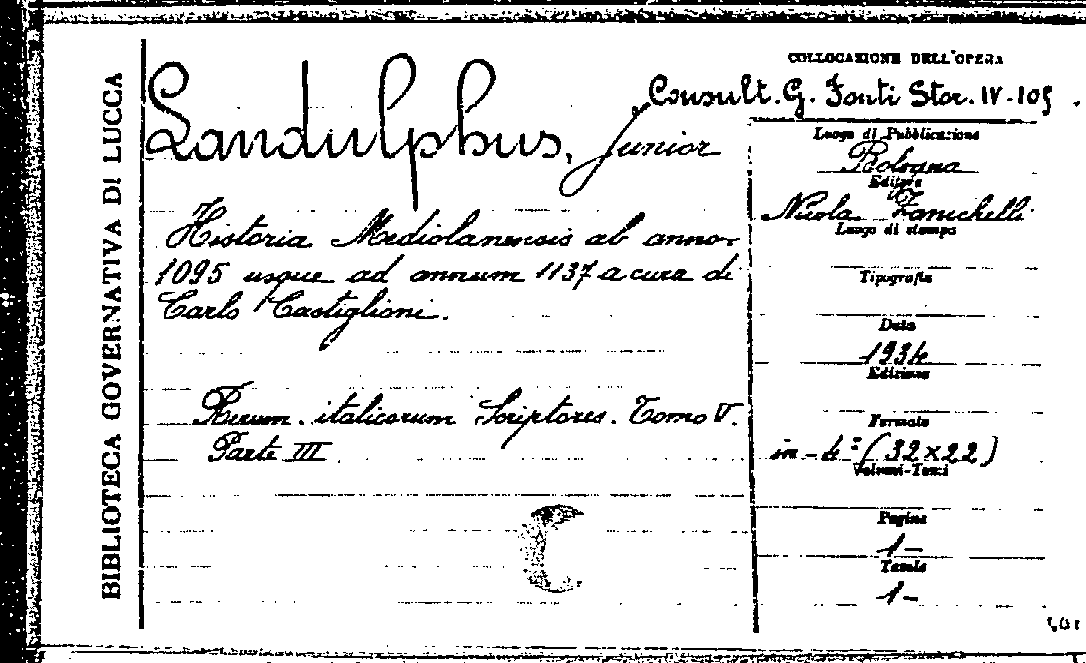 BIBLIOTECA GOVERNATIVA DI LUCCA
Landulphus, Junior
Historia Mediolanensis ab anno
1095 usque ad annum 1137 a cura di
Carlo Castiglioni.
Rerum italicarum Scriptores. Tomo V.
Parte III
COLLOCAZIONE DELL'OPERA
Consult. G. Fonti Stor. IV-105
Luogo di Pubblicazione
Bologna
Editore
Nicola Zanichelli
Luogo di stampa
Tipografia
Data
1934
Edizione
Formato
in-4° (32x22)
Volumi-Tomi
Pagine
1-
Tavole
1-